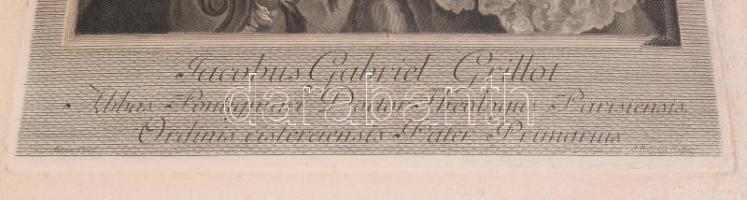 Jacobus Gabriel Grillot
Abbas Pontigniaci Doctor Theologus Parisiensis
Ordinis cisterciensis Pater Primarius
darabanth